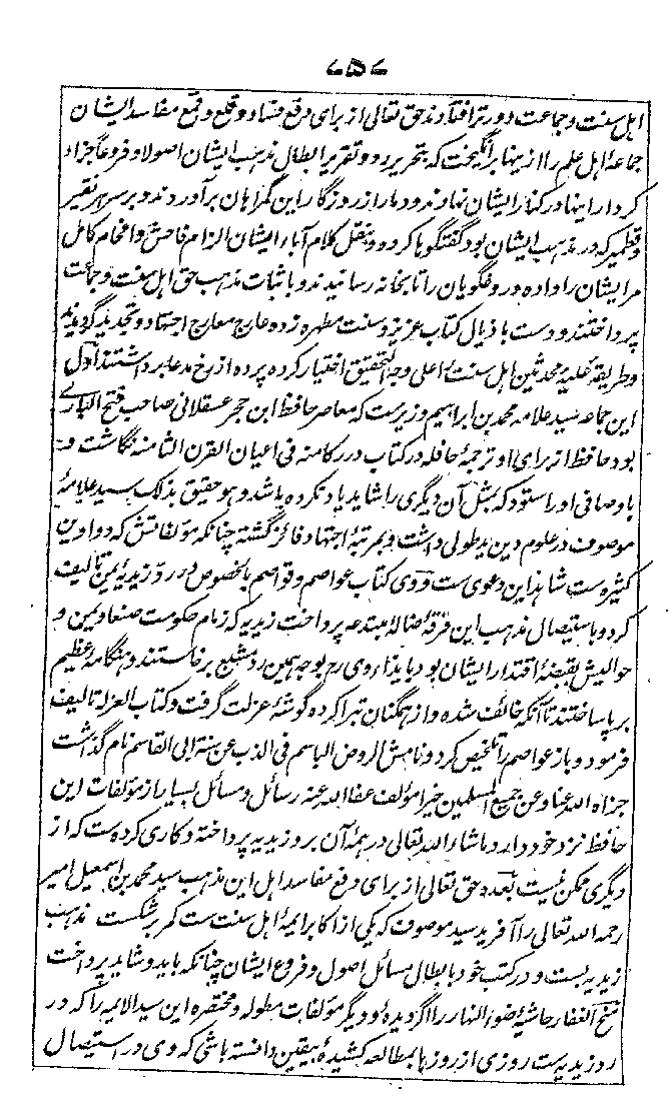 ﴿۵﴾
اہل سنت وجماعت دور تر افتادند حق تعالی از برای دفع فساد و قلع و قمع مفاسد ایشان
جماعۂ اہل علم را ازینہا برانگیخت کہ بتحریر رد و تقریر ابطال مذہب ایشان اصولا و فروعا جزاء
کردار اینہا در کنار ایشان نہادند و دمار از روزگار این گمراہان برآوردند و بر سر ہر نقیر
و قطمیر کہ در مذہب ایشان بود گفتگوہا کردہ و بنقل کلام آباء ایشان الزام فاحش و افحام کامل
مر ایشان را دادہ دروغگویان را تا بخانہ رسانیدند و باثبات مذہب حق اہل سنت وجماعت
پرداختند و دست باذیال کتاب عزیز و سنت مطہرہ زدہ عارج معارج اجتہاد و تجدید گردیدند
و طریقۂ علیۂ محدثین اہل سنت اعلی وجہ التحقیق اختیار کردہ پردہ از رخ مدعا برداشتند اول
این جماعہ سید علامہ محمد بن ابراہیم وزیرست کہ معاصر حافظ ابن حجر عسقلانی صاحب فتح الباری
بود حافظ از برای او ترجمۂ حافلہ در کتاب درر کامنہ فی اعیان القرن الثامنہ نگاشت و
باوصافی او را ستود کہ بمثل آن دیگری را شاید یاد نکردہ باشد وہو حقیق بذلک سید علامۂ
موصوف در علوم دین ید طولی داشت و بمرتبۂ اجتہاد فائز گشتہ چنانکہ مؤلفاتش کہ دواوین
کثیرہ ست شاہد این دعوی ست و وی کتاب عواصم و قواصم بالخصوص در رد زیدیۂ یمن تالیف
کرد و باستیصال مذہب این فرقۂ ضالۂ مبتدعہ پرداخت زیدیہ کہ زمام حکومت صنعاء یمن و
حوالیش بقبضۂ اقتدار ایشان بود بایذاء وی رح بوجہ ہمین رد مشبع برخاستند و ہنگامۂ عظیم
برپا ساختند تا آنکہ خائف شدہ و از ہمگنان تبرا کردہ گوشۂ عزلت گرفت و کتاب العزلہ تالیف
فرمود و باز عواصم را تلخیص کرد و نامش الروض الباسم فی الذب عن سنۃ ابی القاسم نام گذاشت
جزاہ اللہ عنا و عن جمیع المسلمین خیرا مؤلف عفا اللہ عنہ رسائل و مسائل بسیار از مؤلفات این
حافظ نزد خود دارد ماشاء اللہ تعالی در ہمۂ آن برد زیدیہ پرداختہ و کاری کردہ ست کہ از
دیگری ممکن نیست بعدہ حق تعالی از برای دفع مفاسد اہل این مذہب سید محمد بن اسمعیل امیر
رحمہ اللہ تعالی را آفرید سید موصوف کہ یکی از اکابر ائمۂ اہل سنت ست کمر بر شکست مذہب
زیدیہ بست و در کتب خود بابطال مسائل اصول و فروع ایشان چنانکہ باید و شاید پرداخت
منح الغفار حاشیۂ ضوء النہار را اگر دیدۂ و دیگر مؤلفات مطولہ و مختصرہ این سید الائمہ را کہ در
رد زیدیہ ست روزی از روزہا بمطالعہ کشیدۂ بیقین دانستہ باشی کہ وی در استیصال